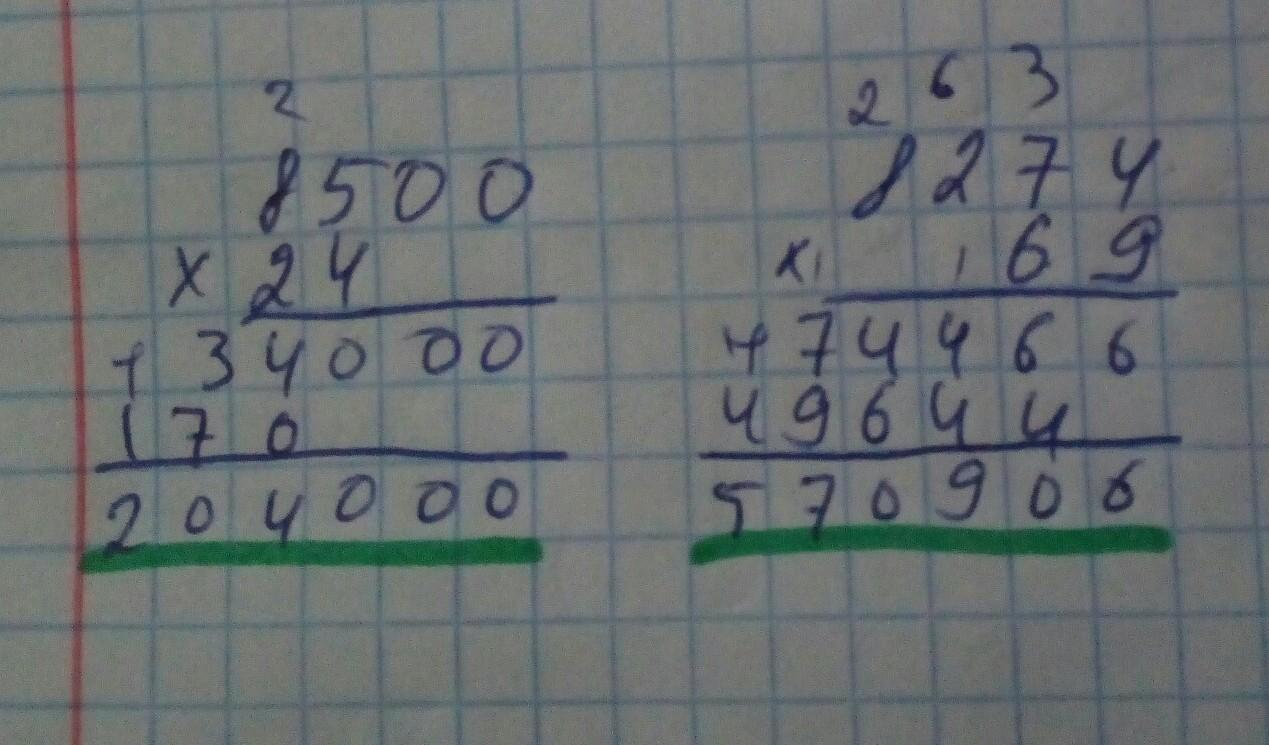 2
8500
× 24
+ 34000
170
204000
2 6 3
8274
× 1 1 69
+ 74466
49644
570906